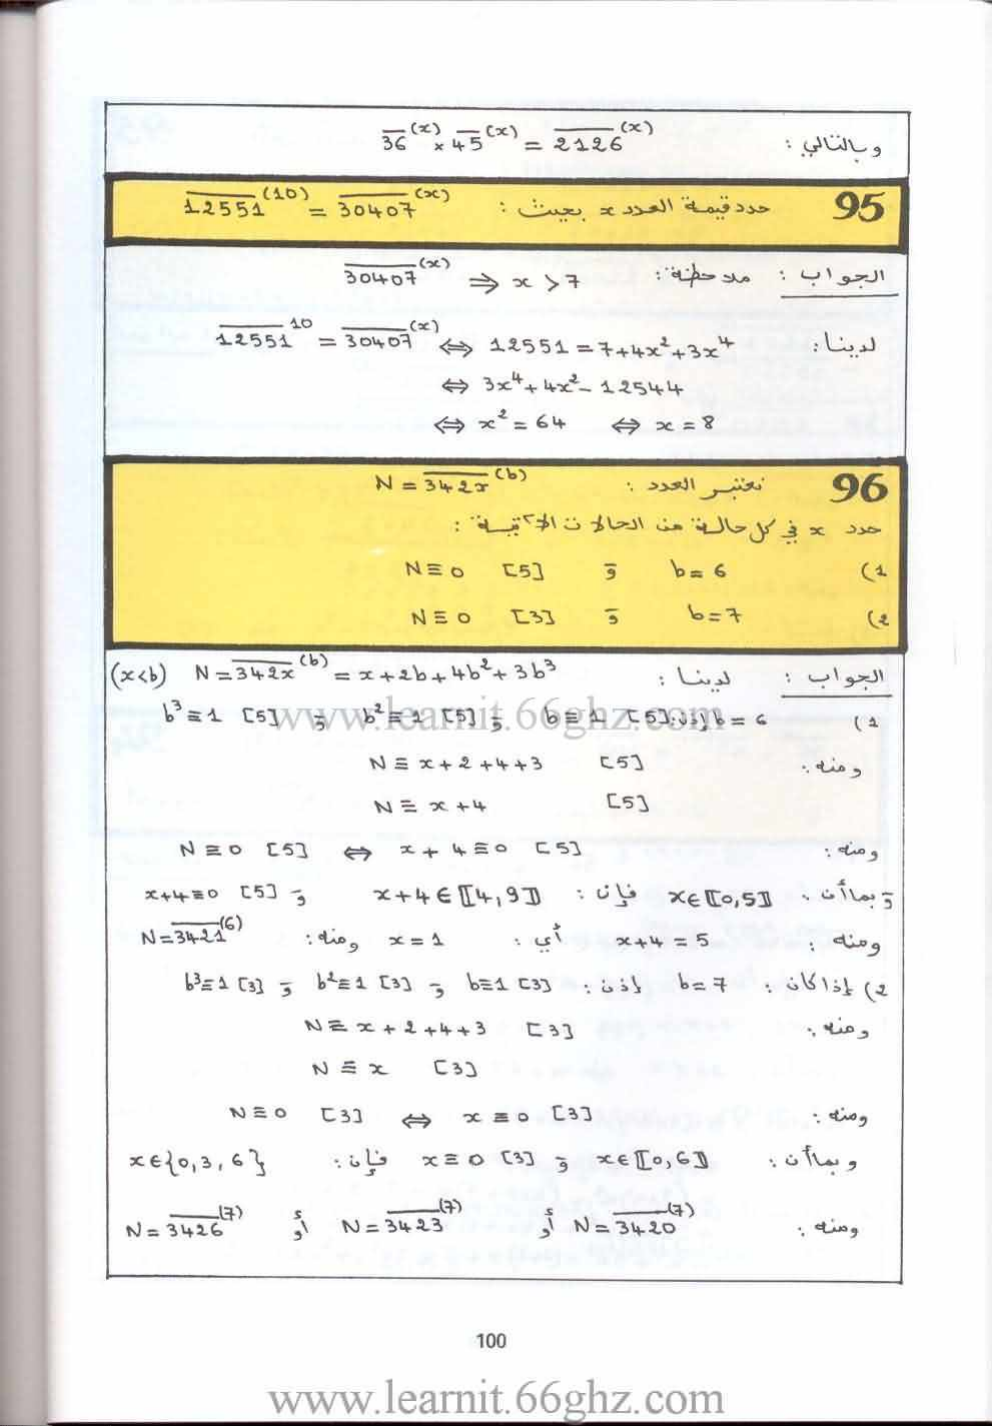 وبالتالي : $\overline{36}^{(x)} \times \overline{45}^{(x)} = \overline{2126}^{(x)}$
95 حدد قيمة العدد x بحيث : $\overline{12551}^{(10)} = \overline{30407}^{(x)}$
الجواب : ملاحظة : $\overline{30407}^{(x)} \Rightarrow x > 7$
لدينا : $\overline{12551}^{10} = \overline{30407}^{(x)} \Leftrightarrow 12551 = 7+4x^2+3x^4$
$\Leftrightarrow 3x^4+4x^2-12544$
$\Leftrightarrow x^2 = 64 \Leftrightarrow x = 8$
96 نعتبر العدد : $N = \overline{342x}^{(b)}$
حدد x في كل حالة من الحالات الآتية :
(1 b = 6 و N ≡ 0 [5]
(2 b = 7 و N ≡ 0 [3]
الجواب : لدينا : $N = \overline{342x}^{(b)} = x+2b+4b^2+3b^3$ (x<b)
(1 b = 6 إذن: b ≡ 1 [5] و b² ≡ 1 [5] و b³ ≡ 1 [5]
ومنه : N ≡ x+2+4+3 [5]
N ≡ x+4 [5]
ومنه : N ≡ 0 [5] ⇔ x+4 ≡ 0 [5]
وبما أن : x∈⟦0,5⟧ فإن : x+4∈⟦4,9⟧ و x+4≡0 [5]
ومنه : x+4 = 5 أي : x = 1 ومنه : $N = \overline{3421}^{(6)}$
(2 إذا كان : b = 7 إذن : b≡1 [3] و b²≡1 [3] و b³≡1 [3]
ومنه : N ≡ x+2+4+3 [3]
N ≡ x [3]
ومنه : N ≡ 0 [3] ⇔ x ≡ 0 [3]
وبما أن : x∈⟦0,6⟧ و x ≡ 0 [3] فإن : x∈{0,3,6}
ومنه : $N = \overline{3420}^{(7)}$ أو $N = \overline{3423}^{(7)}$ أو $N = \overline{3426}^{(7)}$
100
www.learnit.66ghz.com
www.learnit.66ghz.com